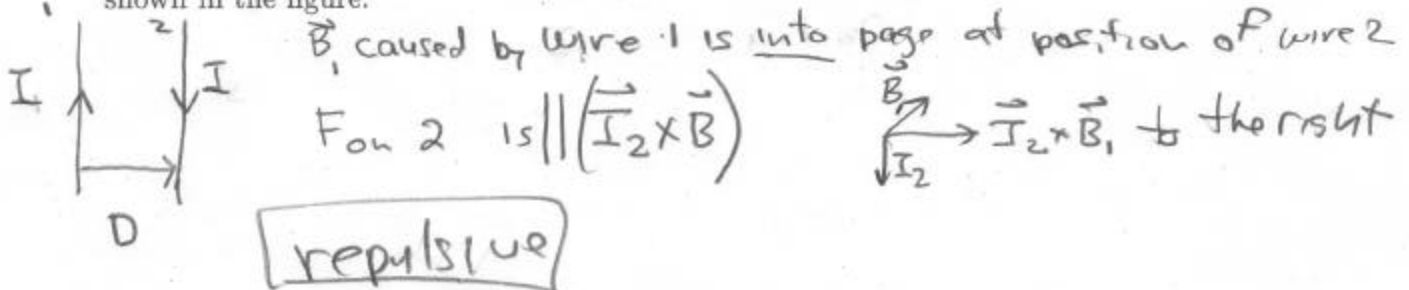 shown in the figure.
1
2
I
I
D
B⃗₁ caused by wire 1 is into page at position of wire 2
F on 2 is || (I⃗₂ x B⃗)
B⃗
I₂
I⃗₂ x B⃗₁ to the right
repulsive